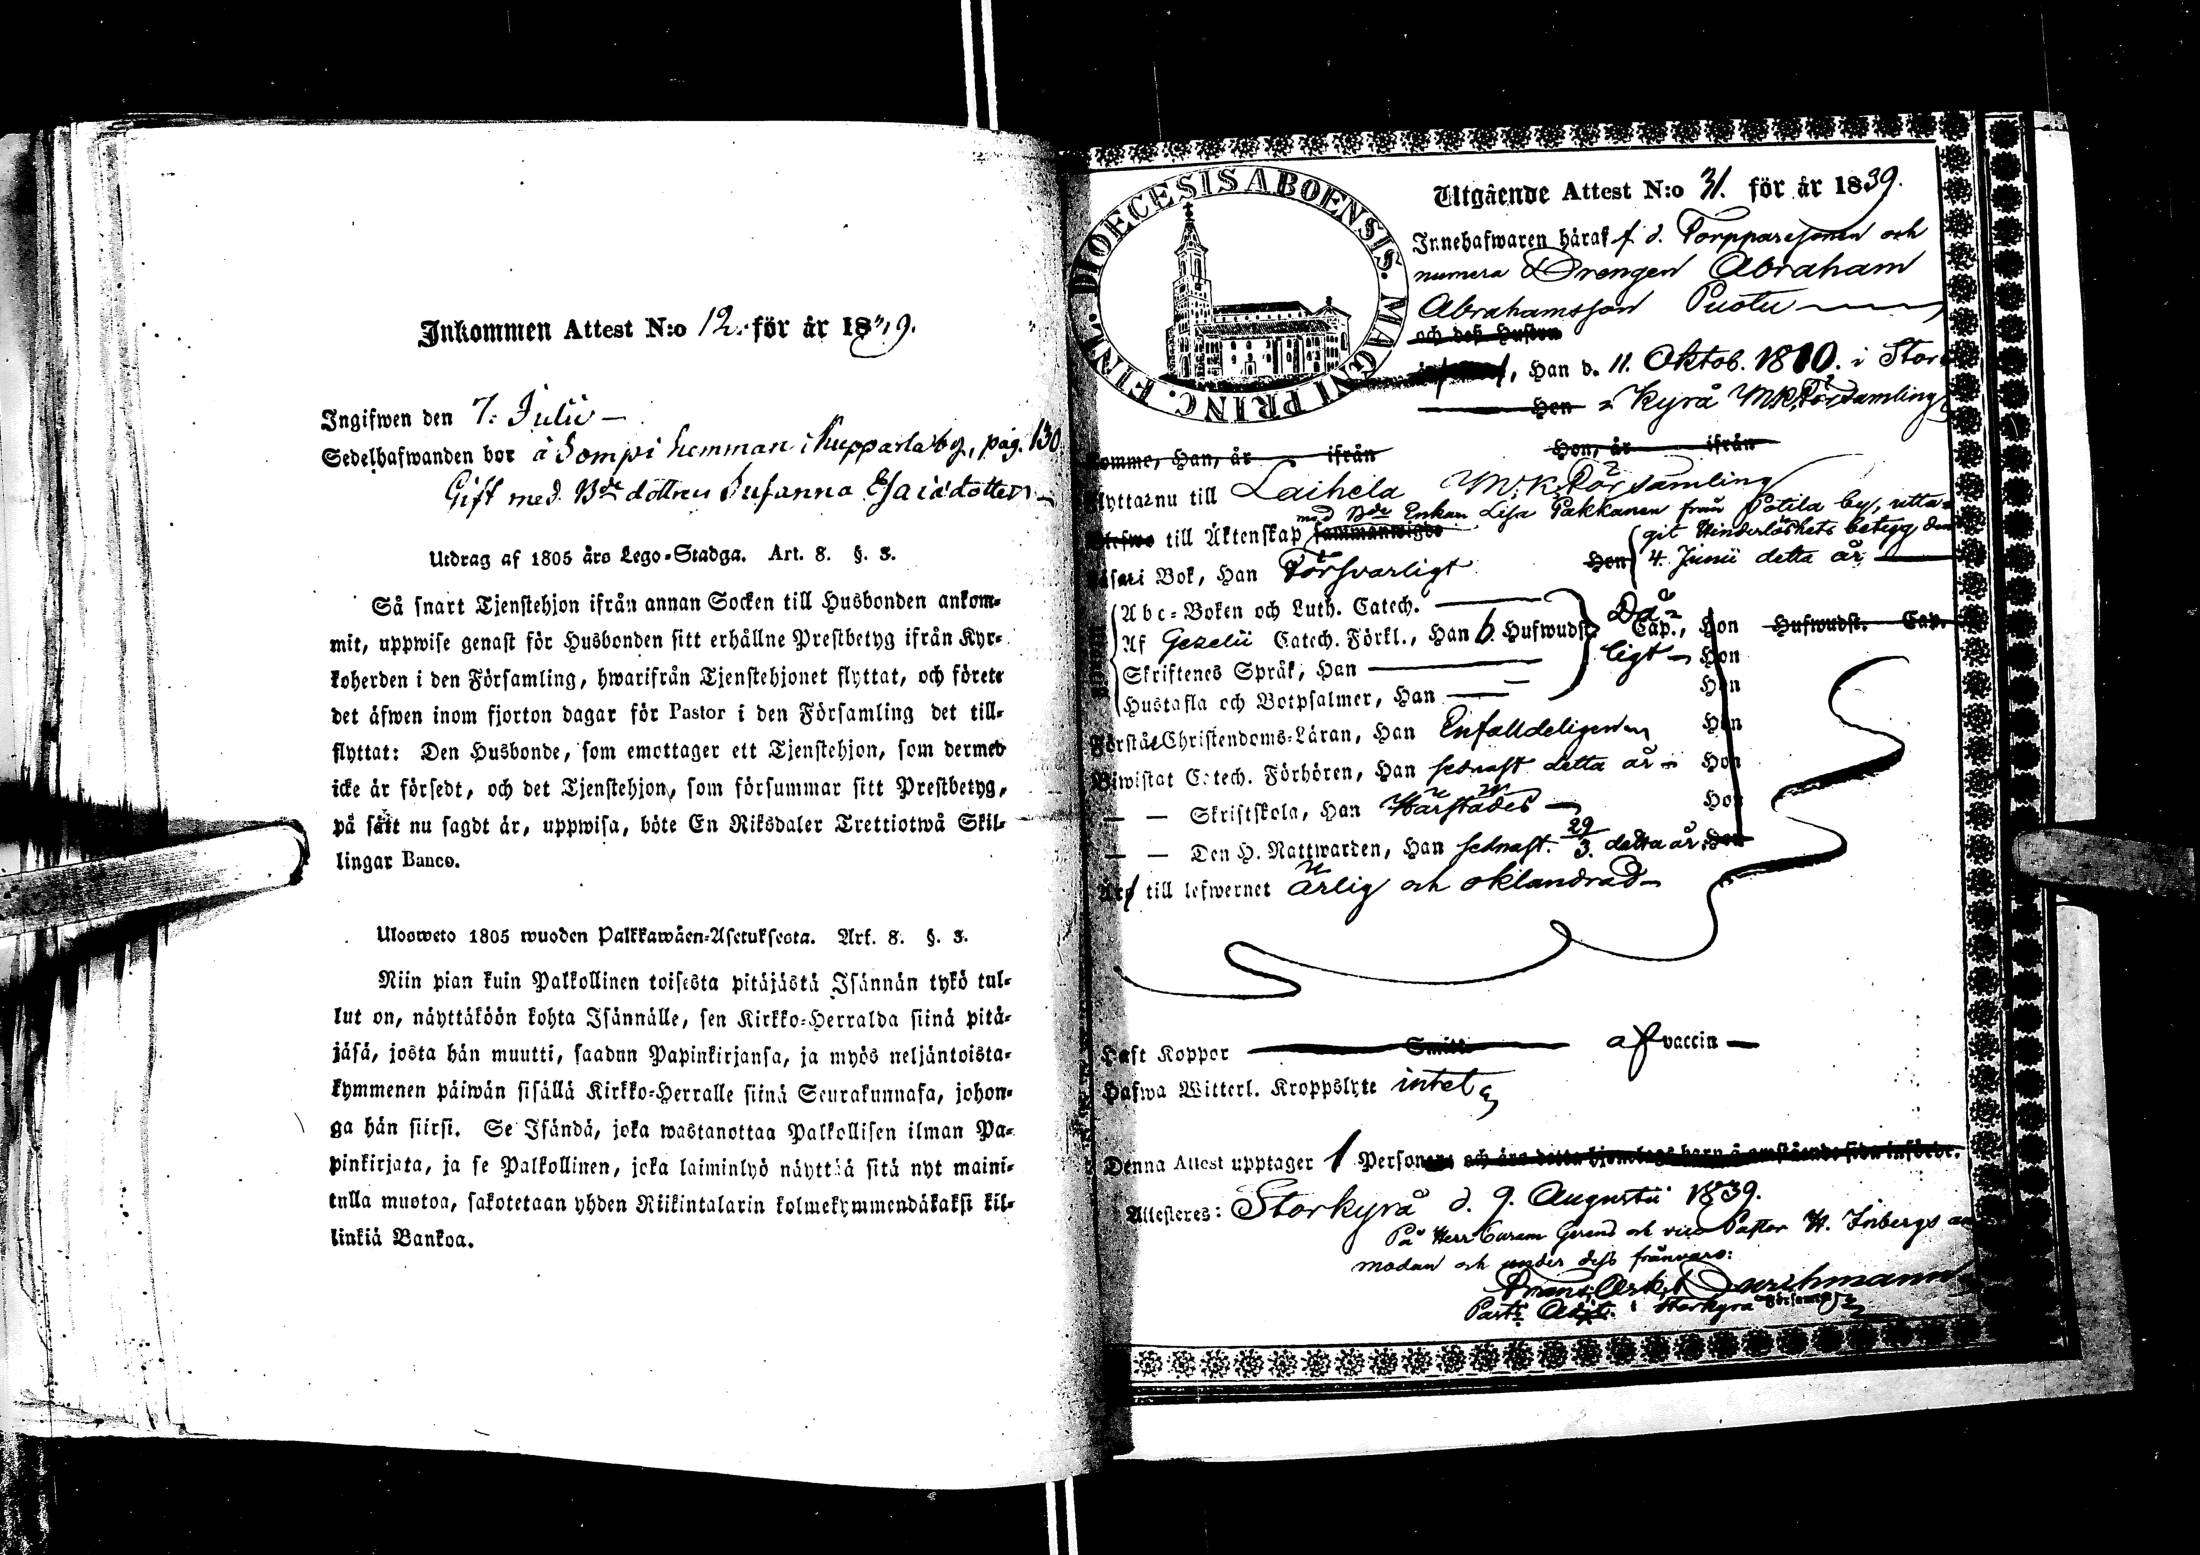 Inkommen Attest N:o 12. för år 1839.
Ingifwen den 7. Julii –
Sedelhafwanden bor å Sompi hemman i Kupparla by, pag. 130
Gift med Bde dottren Susanna Esaiædotter
Utdrag af 1805 års Lego-Stadga. Art. 8. §. 3.
Så snart Tjenstehjon ifrån annan Socken till Husbonden ankom-
mit, uppwise genast för Husbonden sitt erhållne Prestbetyg ifrån Kyr-
koherden i den Församling, hwarifrån Tjenstehjonet flyttat, och förete
det äfwen inom fjorton dagar för Pastor i den Församling det till-
flyttat: Den Husbonde, som emottager ett Tjenstehjon, som dermed
icke är försedt, och det Tjenstehjon, som försummar sitt Prestbetyg,
på sätt nu sagdt är, uppwisa, böte En Riksdaler Trettiotwå Skil-
lingar Banco.
Ulosweto 1805 wuoden Palkkawäen-Asetuksesta. Art. 8. §. 3.
Niin pian kuin Palkollinen toisesta pitäjästä Isännän tykö tul-
lut on, näyttäköön kohta Isännälle, sen Kirkko-Herralda siinä pitä-
jäsä, josta hän muutti, saadun Papinkirjansa, ja myös neljäntoista-
kymmenen päiwän sisällä Kirkko-Herralle siinä Seurakunnasa, johon-
ga hän siirsi. Se Isändä, joka wastanottaa Palkollisen ilman Pa-
pinkirjata, ja se Palkollinen, joka laiminlyö näyttää sitä nyt maini-
tulla muotoa, sakotetaan yhden Riikintalarin kolmekymmendäkaksi kil-
linkiä Bankoa.
DIOECESIS ABOENSIS. MAGNI PRINC. FINL.
Utgående Attest N:o 31. för år 1839.
Innehafwaren häraf f. d. Torpparesonen och
numera Drengen Abraham
Abrahamsson Puotu
och deß Hustru
, Han d. 11. Oktob. 1810. i Stor-
Hon kyrå Församling
Komne, Han, år ifrån Hon, år ifrån
Flytta nu till Laihela Församling
med Bde Enkan Lisa Pakkanen från Potila by, utta-
till Äktenskap sammanwigde git Hinderlöshets betyg den
Läsa i Bok, Han Försvarligt Hon 4. Junii detta år
Abc-Boken och Luth. Catech.
Af Gezelii Catech. Förkl., Han 6. Hufwudst. Cap., Hon Hufwudst. Cap.
Skriftenes Språk, Han ligt Hon
Hustafla och Botpsalmer, Han Hon
Förstå Christendoms-Läran, Han Enfalldeligen Hon
Biwistat Catech. Förhören, Han sednast detta år Hon
— — Skriftskola, Han Härstädes Hon
— — Den H. Nattwarden, Han sednast 29/3. detta år. Hon
Är till lefwernet ärlig och oklandrad
Haft Koppor Smitt. af vaccin
Hafwa Witterl. Kroppslyte intet
Denna Attest upptager 1 Person och äro detta hjonelags barn å omstående sida införde.
Attesteres: Storkyrå d. 9. Augustii 1839.
På Herr Curam Gerens och vice Pastor H. Inbergs an
modan och under dess frånvaro:
Durchmann
i Storkyrå Församl: